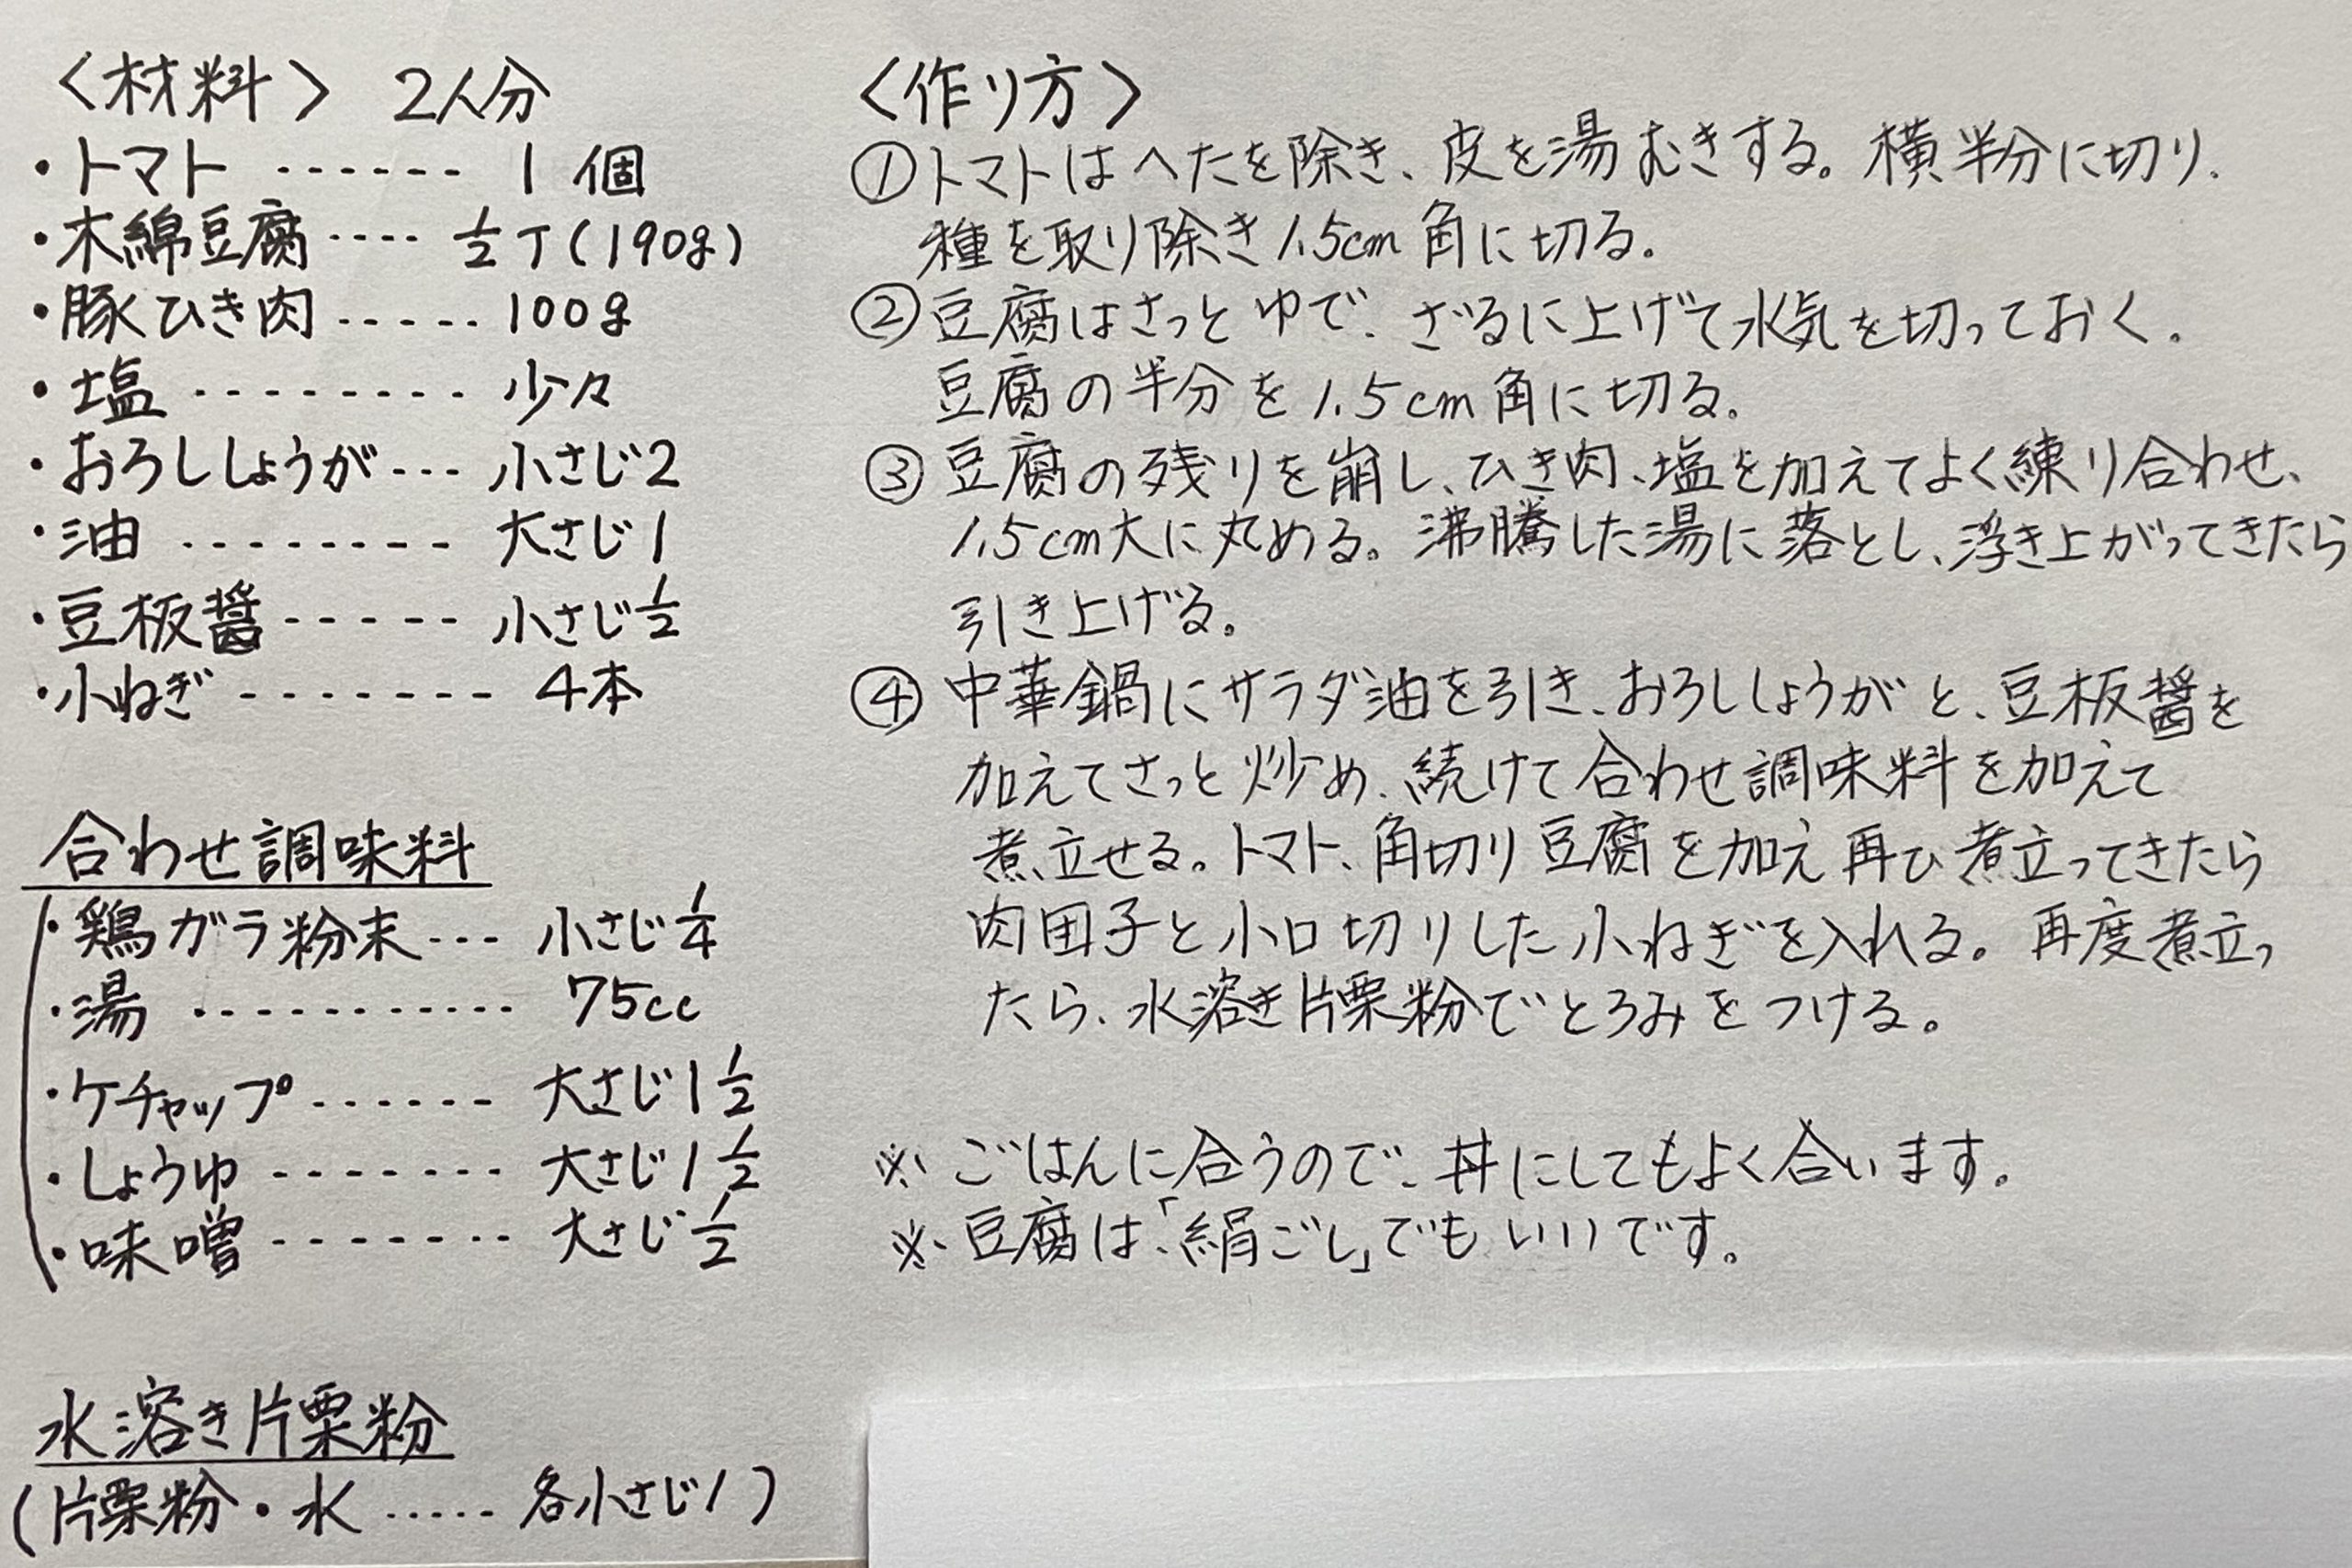 〈材料〉 2人分
・トマト ------ 1個
・木綿豆腐 ---- 1/2丁(190g)
・豚ひき肉 ----- 100g
・塩 -------- 少々
・おろししょうが --- 小さじ2
・油 -------- 大さじ1
・豆板醤 ----- 小さじ1/2
・小ねぎ ------- 4本
合わせ調味料
・鶏ガラ粉末 --- 小さじ1/4
・湯 ----------- 75cc
・ケチャップ ------ 大さじ1 1/2
・しょうゆ ------- 大さじ1 1/2
・味噌 ------- 大さじ1/2
水溶き片栗粉
(片栗粉・水 ..... 各小さじ1)
〈作り方〉
①トマトはへたを除き、皮を湯むきする。横半分に切り、
種を取り除き1.5cm角に切る。
②豆腐はさっとゆで、ざるに上げて水気を切っておく。
豆腐の半分を1.5cm角に切る。
③豆腐の残りを崩し、ひき肉、塩を加えてよく練り合わせ、
1.5cm大に丸める。沸騰した湯に落とし、浮き上がってきたら
引き上げる。
④中華鍋にサラダ油を引き、おろししょうがと、豆板醤を
加えてさっと炒め、続けて合わせ調味料を加えて
煮立せる。トマト、角切り豆腐を加え再び煮立ってきたら
肉団子と小口切りした小ねぎを入れる。再度煮立っ
たら、水溶き片栗粉でとろみをつける。
※ごはんに合うので、丼にしてもよく合います。
※豆腐は、「絹ごし」でもいいです。